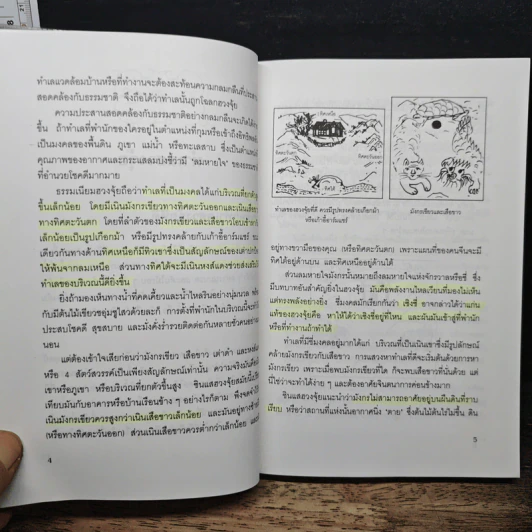 ทำเลแวดล้อมบ้านหรือที่ทำงานจะต้องสะท้อนความกลมกลืนที่ประสาน
สอดคล้องกับธรรมชาติ จึงถือได้ว่าทำเลนั้นถูกโฉลกฮวงจุ้ย
ความประสานสอดคล้องกับธรรมชาติอย่างกลมกลืนจะเกิดได้
ขึ้น ถ้าทำเลที่พำนักของใครอยู่ในตำแหน่งที่กุมหรือเข้าถึง
เป็นมงคลของพื้นดิน ภูเขา แม่น้ำ หรือทะเลสาบ ซึ่งเป็นตำแหน่ง
คุณภาพของอากาศและกระแสลมบ่งชี้ว่ามี "ลมหายใจ" ของธรรมชาติ
ที่อำนวยโชคดีมากมาย
ธรรมเนียมฮวงจุ้ยถือว่าทำเลที่เป็นมงคลได้แก่บริเวณที่ยกตัว
ขึ้นเล็กน้อย โดยมีเนินมังกรเขียวทางทิศตะวันออกและเนินเสือขาว
ทางทิศตะวันตก โดยที่ลำตัวของมังกรเขียวและเสือขาวโอบเข้าหากัน
เล็กน้อยเป็นรูปเกือกม้า หรือมีรูปทรงคล้ายกับเก้าอี้อาร์มแชร์ ขณะ
เดียวกันทางด้านทิศเหนือก็มีทิวเขาซึ่งเป็นสัญลักษณ์ของเต่าดำปกป้อง
ให้พ้นจากลมเหนือ ส่วนทางทิศใต้จะมีเนินหงส์แดงช่วยส่งเสริมให้
ทำเลของบริเวณนี้ดียิ่งขึ้น
ยิ่งถ้ามองเห็นทางน้ำที่คดเคี้ยวและน้ำไหลรินอย่างนุ่มนวล
กับมีต้นไม้เขียวชอุ่มชูไสวด้วยละก็ การตั้งที่พำนักในบริเวณนี้จะทำให้
ประสบโชคดี สุขสบาย และมั่งคั่งร่ำรวยติดต่อกันหลายชั่วคนอย่างแน่
นอน
แต่ต้องเข้าใจเสียก่อนว่ามังกรเขียว เสือขาว เต่าดำ และหงส์แดง
หรือ 4 สัตว์สวรรค์เป็นเพียงสัญลักษณ์เท่านั้น ความจริงมันคือเนิน
เขาหรือภูเขา หรือบริเวณที่ยกตัวขึ้นสูง ซินแสฮวงจุ้ยสมัยนี้
เทียบมันกับอาคารหรือบ้านเรือนข้าง ๆ อย่างไรก็ตาม พึงจดจำไว้ว่า
เนินมังกรเขียวควรสูงกว่าเนินเสือขาวเล็กน้อย และมันอยู่ทางซ้าย
(หรือทางทิศตะวันออก) ส่วนเนินเสือขาวควรต่ำกว่าเล็กน้อย และ
4
ทำเลของฮวงจุ้ยที่ดี ควรมีรูปทรงคล้ายเกือกม้า
หรือเก้าอี้อาร์มแชร์
มังกรเขียวและเสือขาว
อยู่ทางขวามือของคุณ (หรือทิศตะวันตก) เพราะแผนที่ของคนจีนจะมี
ทิศใต้อยู่ด้านบน และทิศเหนืออยู่ด้านใต้
ส่วนลมหายใจมังกรนั้นหมายถึงลมหายใจแห่งจักรวาลหรือชี่ ซึ่ง
มีบทบาทอันสำคัญยิ่งในฮวงจุ้ย มันคือพลังงานไหลเวียนที่มองไม่เห็น
แต่ทรงพลังอย่างยิ่ง ซึ่งมงคลมักเรียกกันว่า เชิงชี่ อาจกล่าวได้ว่าแก่น
แท้ของฮวงจุ้ยคือ หาให้ได้ว่าเชิงชี่อยู่ที่ไหน และผันมันเข้าสู่ที่พำนัก
หรือที่ทำงานถ้าทำได้
ทำเลที่มีชี่มงคลอยู่มากได้แก่ บริเวณที่เป็นเนินเขาซึ่งมีรูปลักษณ์
คล้ายมังกรเขียวกับเสือขาว การแสวงหาทำเลที่ดีจะเริ่มต้นด้วยการหา
มังกรเขียว เพราะเมื่อพบมังกรเขียวที่ใด ก็จะพบเสือขาวที่นั่นด้วย แต่
นี่ใช่ว่าจะทำได้ง่าย ๆ และต้องอาศัยจินตนาการค่อนข้างมาก
ซินแสฮวงจุ้ยแนะนำว่ามังกรไม่สามารถอาศัยอยู่บนผืนดินที่ราบ
เรียบ หรือว่าสถานที่แห่งนั้นอากาศนิ่ง "ตาย" ซึ่งต้นไม้ต้นไร่ไม่ขึ้น ดิน
5